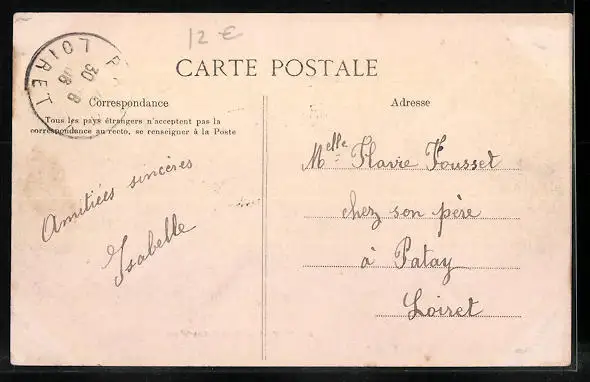 12 €
CARTE POSTALE
LOIRET
30 8
08
Correspondance
Tous les pays étrangers n'acceptent pas la
correspondance au recto, se renseigner à la Poste
Amitiées sincères
Isabelle
Adresse
Melle Flavie Fousset
chez son père
à Patay
Loiret